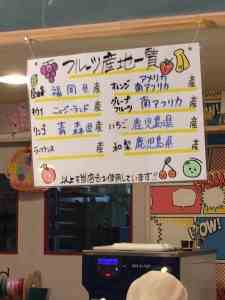 フルーツ産地一覧
福岡県産
オレンジ アメリカ 南アフリカ 産
キウイ ニュージーランド 産
グレープフルーツ 南アフリカ 産
りんご 青森県産
いちご 鹿児島県産
和梨 鹿児島県産
以上を当店では使用しています